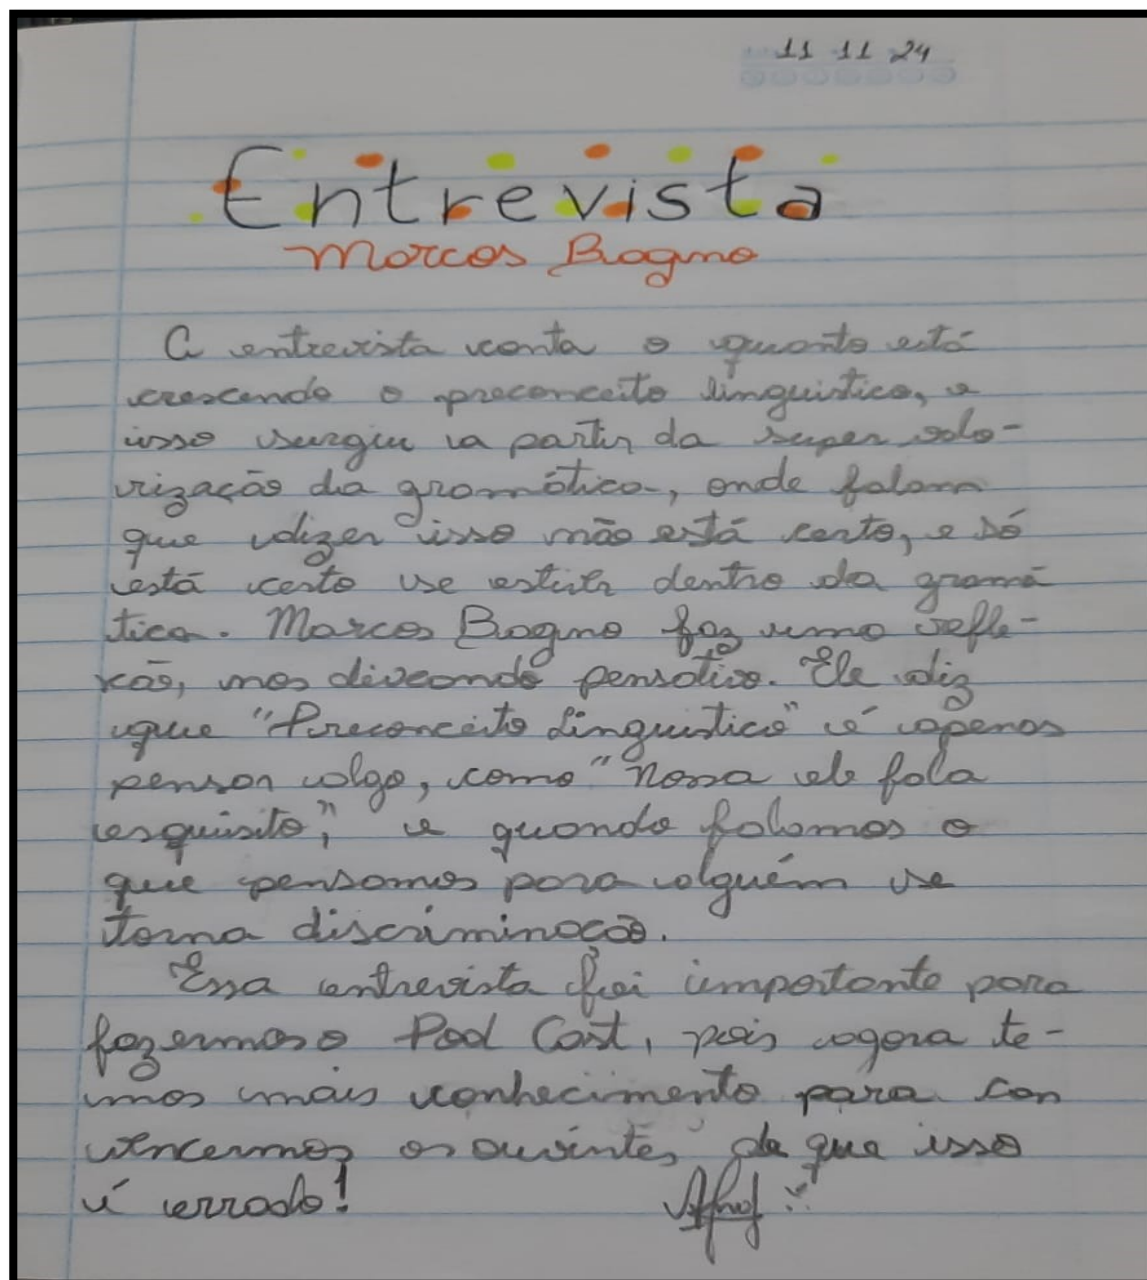 11 11 24
Entrevista
Marcos Bagno
A entrevista conta o quanto está
crescendo o preconceito linguistico, e
isso surgiu a partir da super valo-
rização da gramática, onde falam
que dizer isso não está certo, e só
está certo se estiver dentro da gramá
tica. Marcos Bagno faz uma refle-
xão, nos deixando pensativo. Ele diz
que "Preconceito Linguistico" é apenas
pensar algo, como "Nossa ele fala
esquisito", e quando falamos o
que pensamos para alguém se
torna discriminação.
Essa entrevista foi importante para
fazermos o Pod Cast, pois agora te-
mos mais conhecimento para con
vencermos os ouvintes de que isso
é errado!